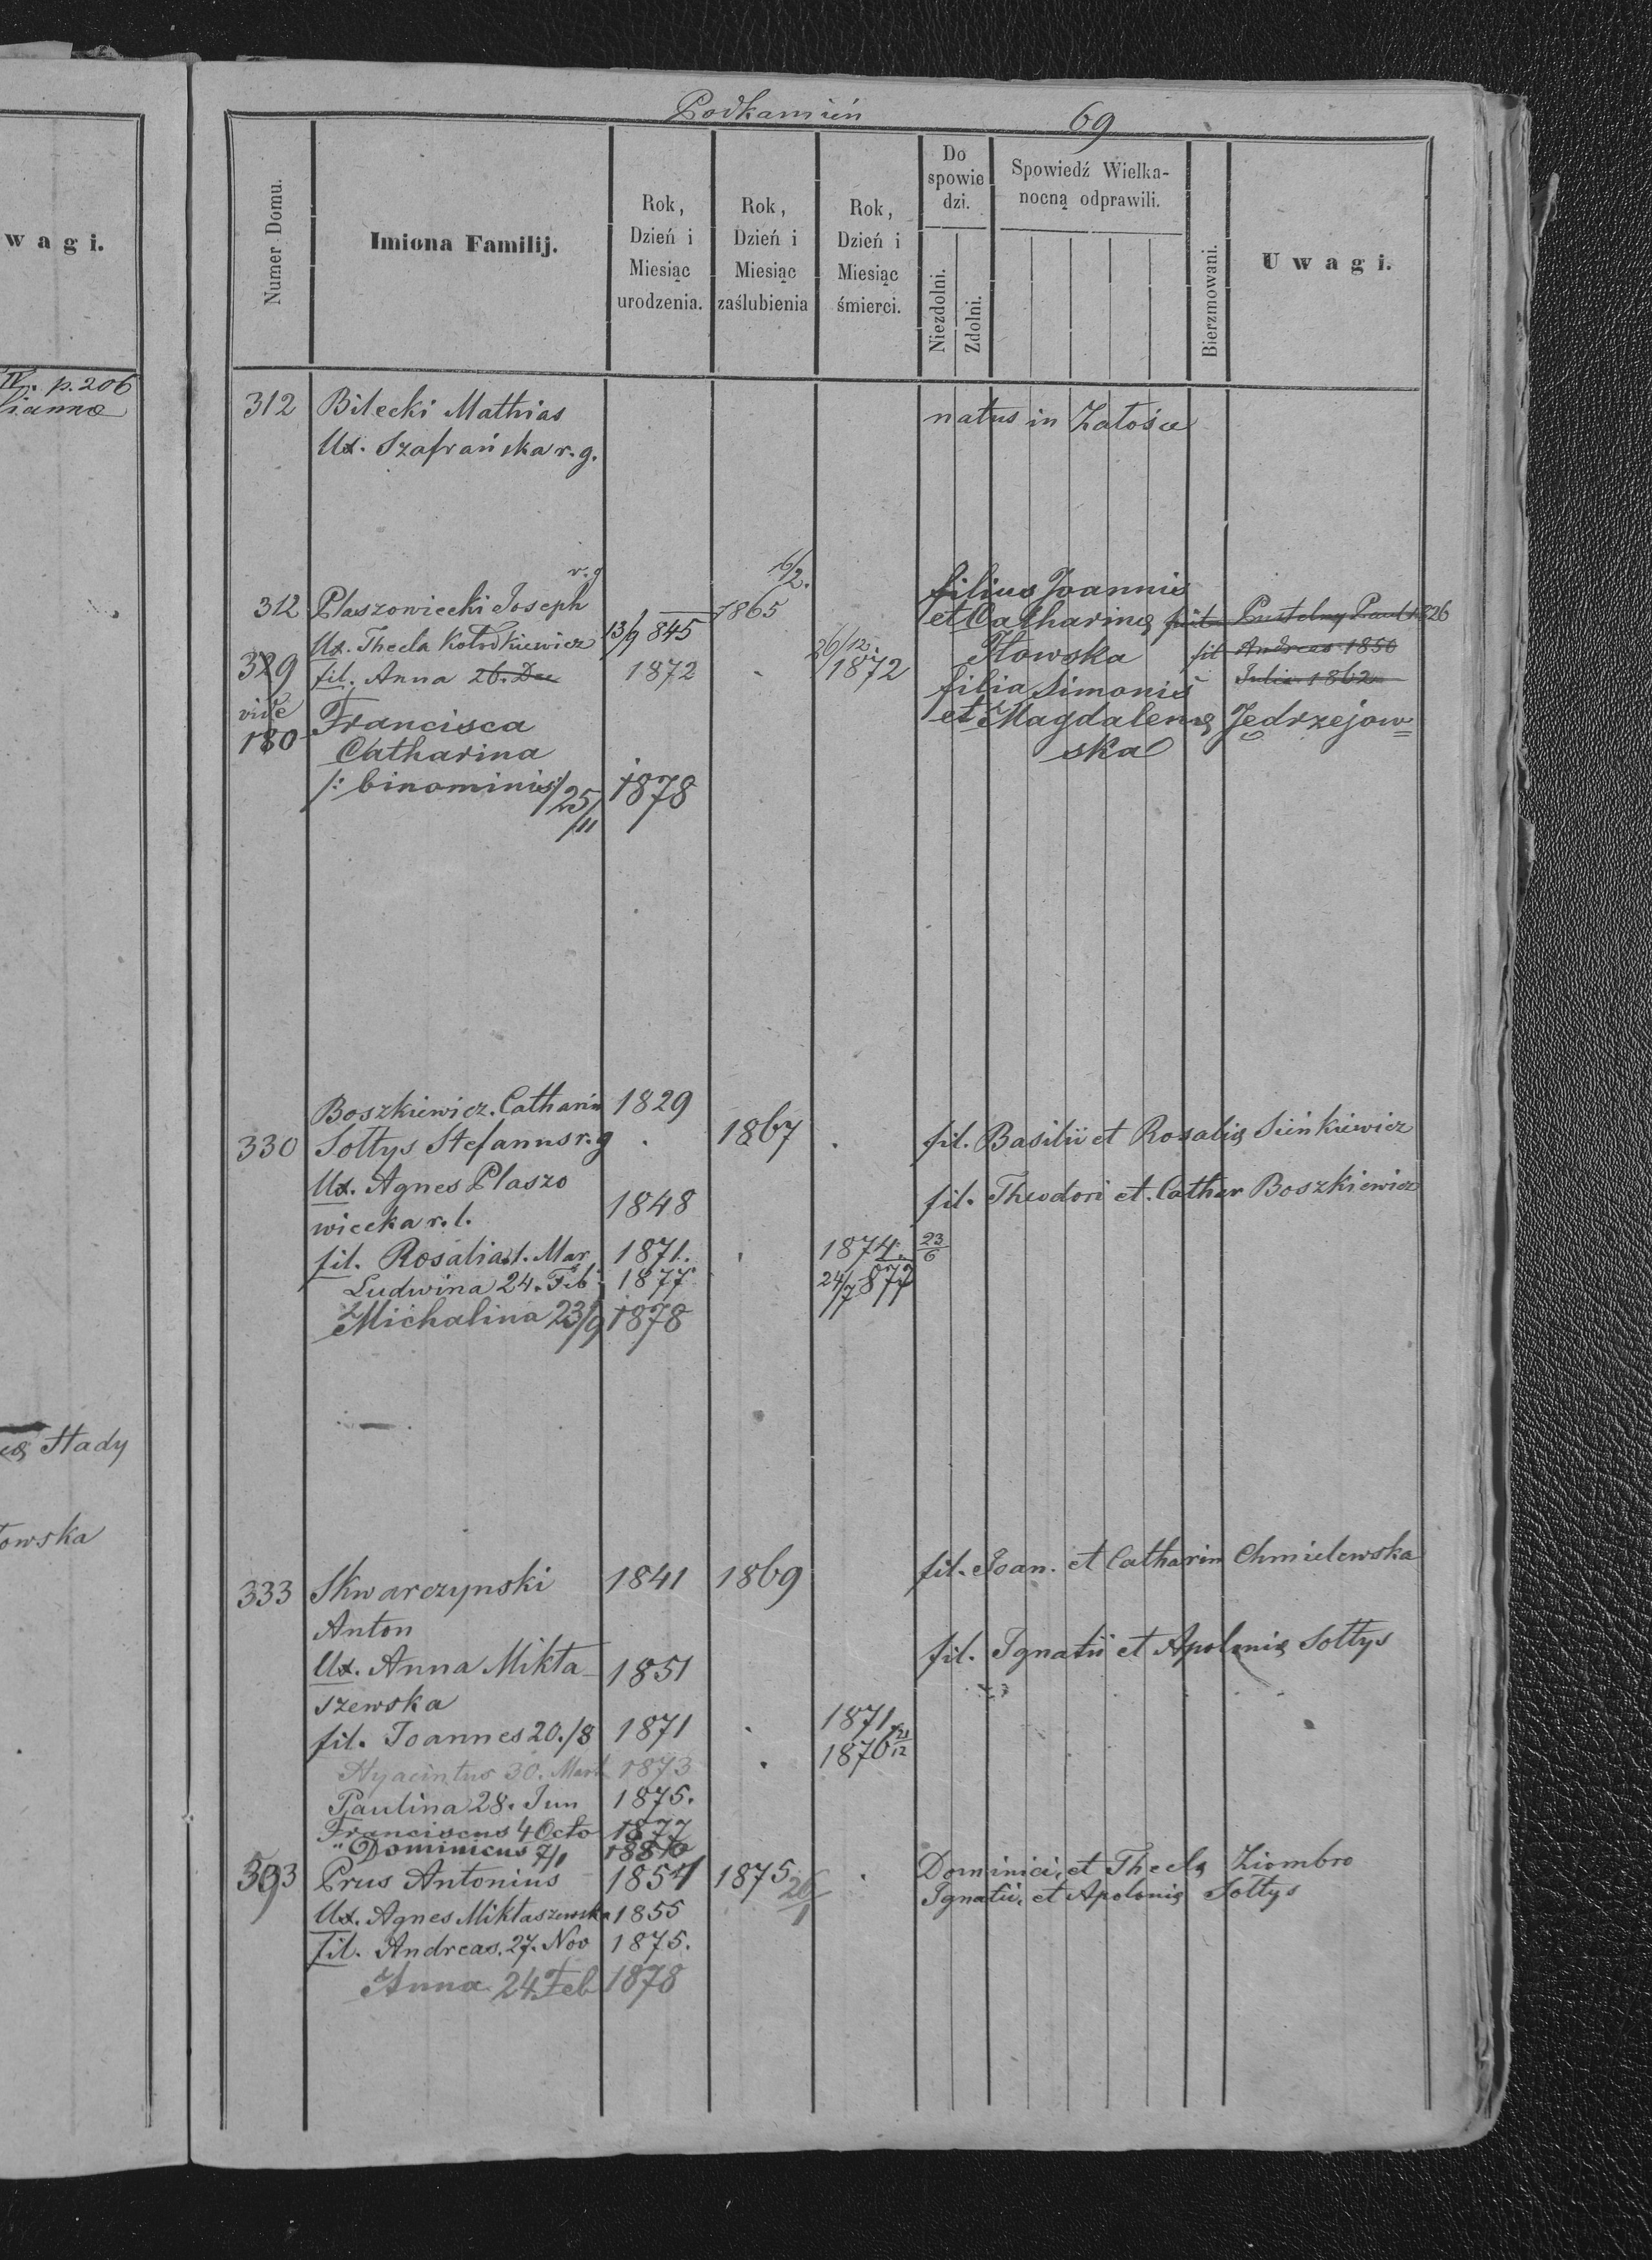 w a g i.
IV. p. 206
Hady
owska
Podkamień
69
Numer Domu.
Imiona Familij.
Rok, Dzień i Miesiąc urodzenia.
Rok, Dzień i Miesiąc zaślubienia
Rok, Dzień i Miesiąc śmierci.
Do spowie dzi.
Niezdolni.
Zdolni.
Spowiedź Wielka-
nocną odprawili.
Bierzmowani.
U w a g i.
312 Bilecki Mathias natus in Załośce
Ux. Szafrańska r. g.
r. g 6/2.
312 Płaszowiecki Joseph 1865 filius Joannis
Ux. Thecla Kołodkiewicz 13/9 845 et Catharinę Pustelny Paul 1826
329 fil. Anna 26. Dec 1872 26/12. 1872 Iłowska fil Andreas 1850
vide Francisca filia Simonis Julia 1862
180 Catharina et Magdalenę Jędrzejow=
/: binominis :/ 25/11 1878 ska
Boszkiewicz. Catharin 1829
330 Sołtys Stefanus r. g 1867 fil. Basilii et Rosalię Sieńkiewicz
Ux. Agnes Płaszo
wiecka r. l. 1848 fil. Theodori et. Cather Boszkiewicz
fil. Rosalia 1. Mar 1871. 1874. 23/6
Ludwina 24. Feb 1877 24/7 877
Michalina 23/9 1878
333 Skwarczynski 1841 1869 fil. Joan. et Catharin Chmielewska
Anton
Ux. Anna Mikła- 1851 fil. Ignatii et Apolonię Sołtys
szewska
fil. Joannes 20./8 1871 1871
Hyacintus 30. Mart 1873 1876 21/12
Paulina 28. Jun 1875.
Franciscus 4 Octo 1877
" Dominicus 7/1 1880
393 Prus Antonius 1854 1875 26/1 Dominici, et Theclę Ziombro
Ux. Agnes Miktaszewska 1855 Ignatii, et Apolonię Sołtys
Fil. Andreas. 27. Nov 1875.
Anna 24 Feb 1878